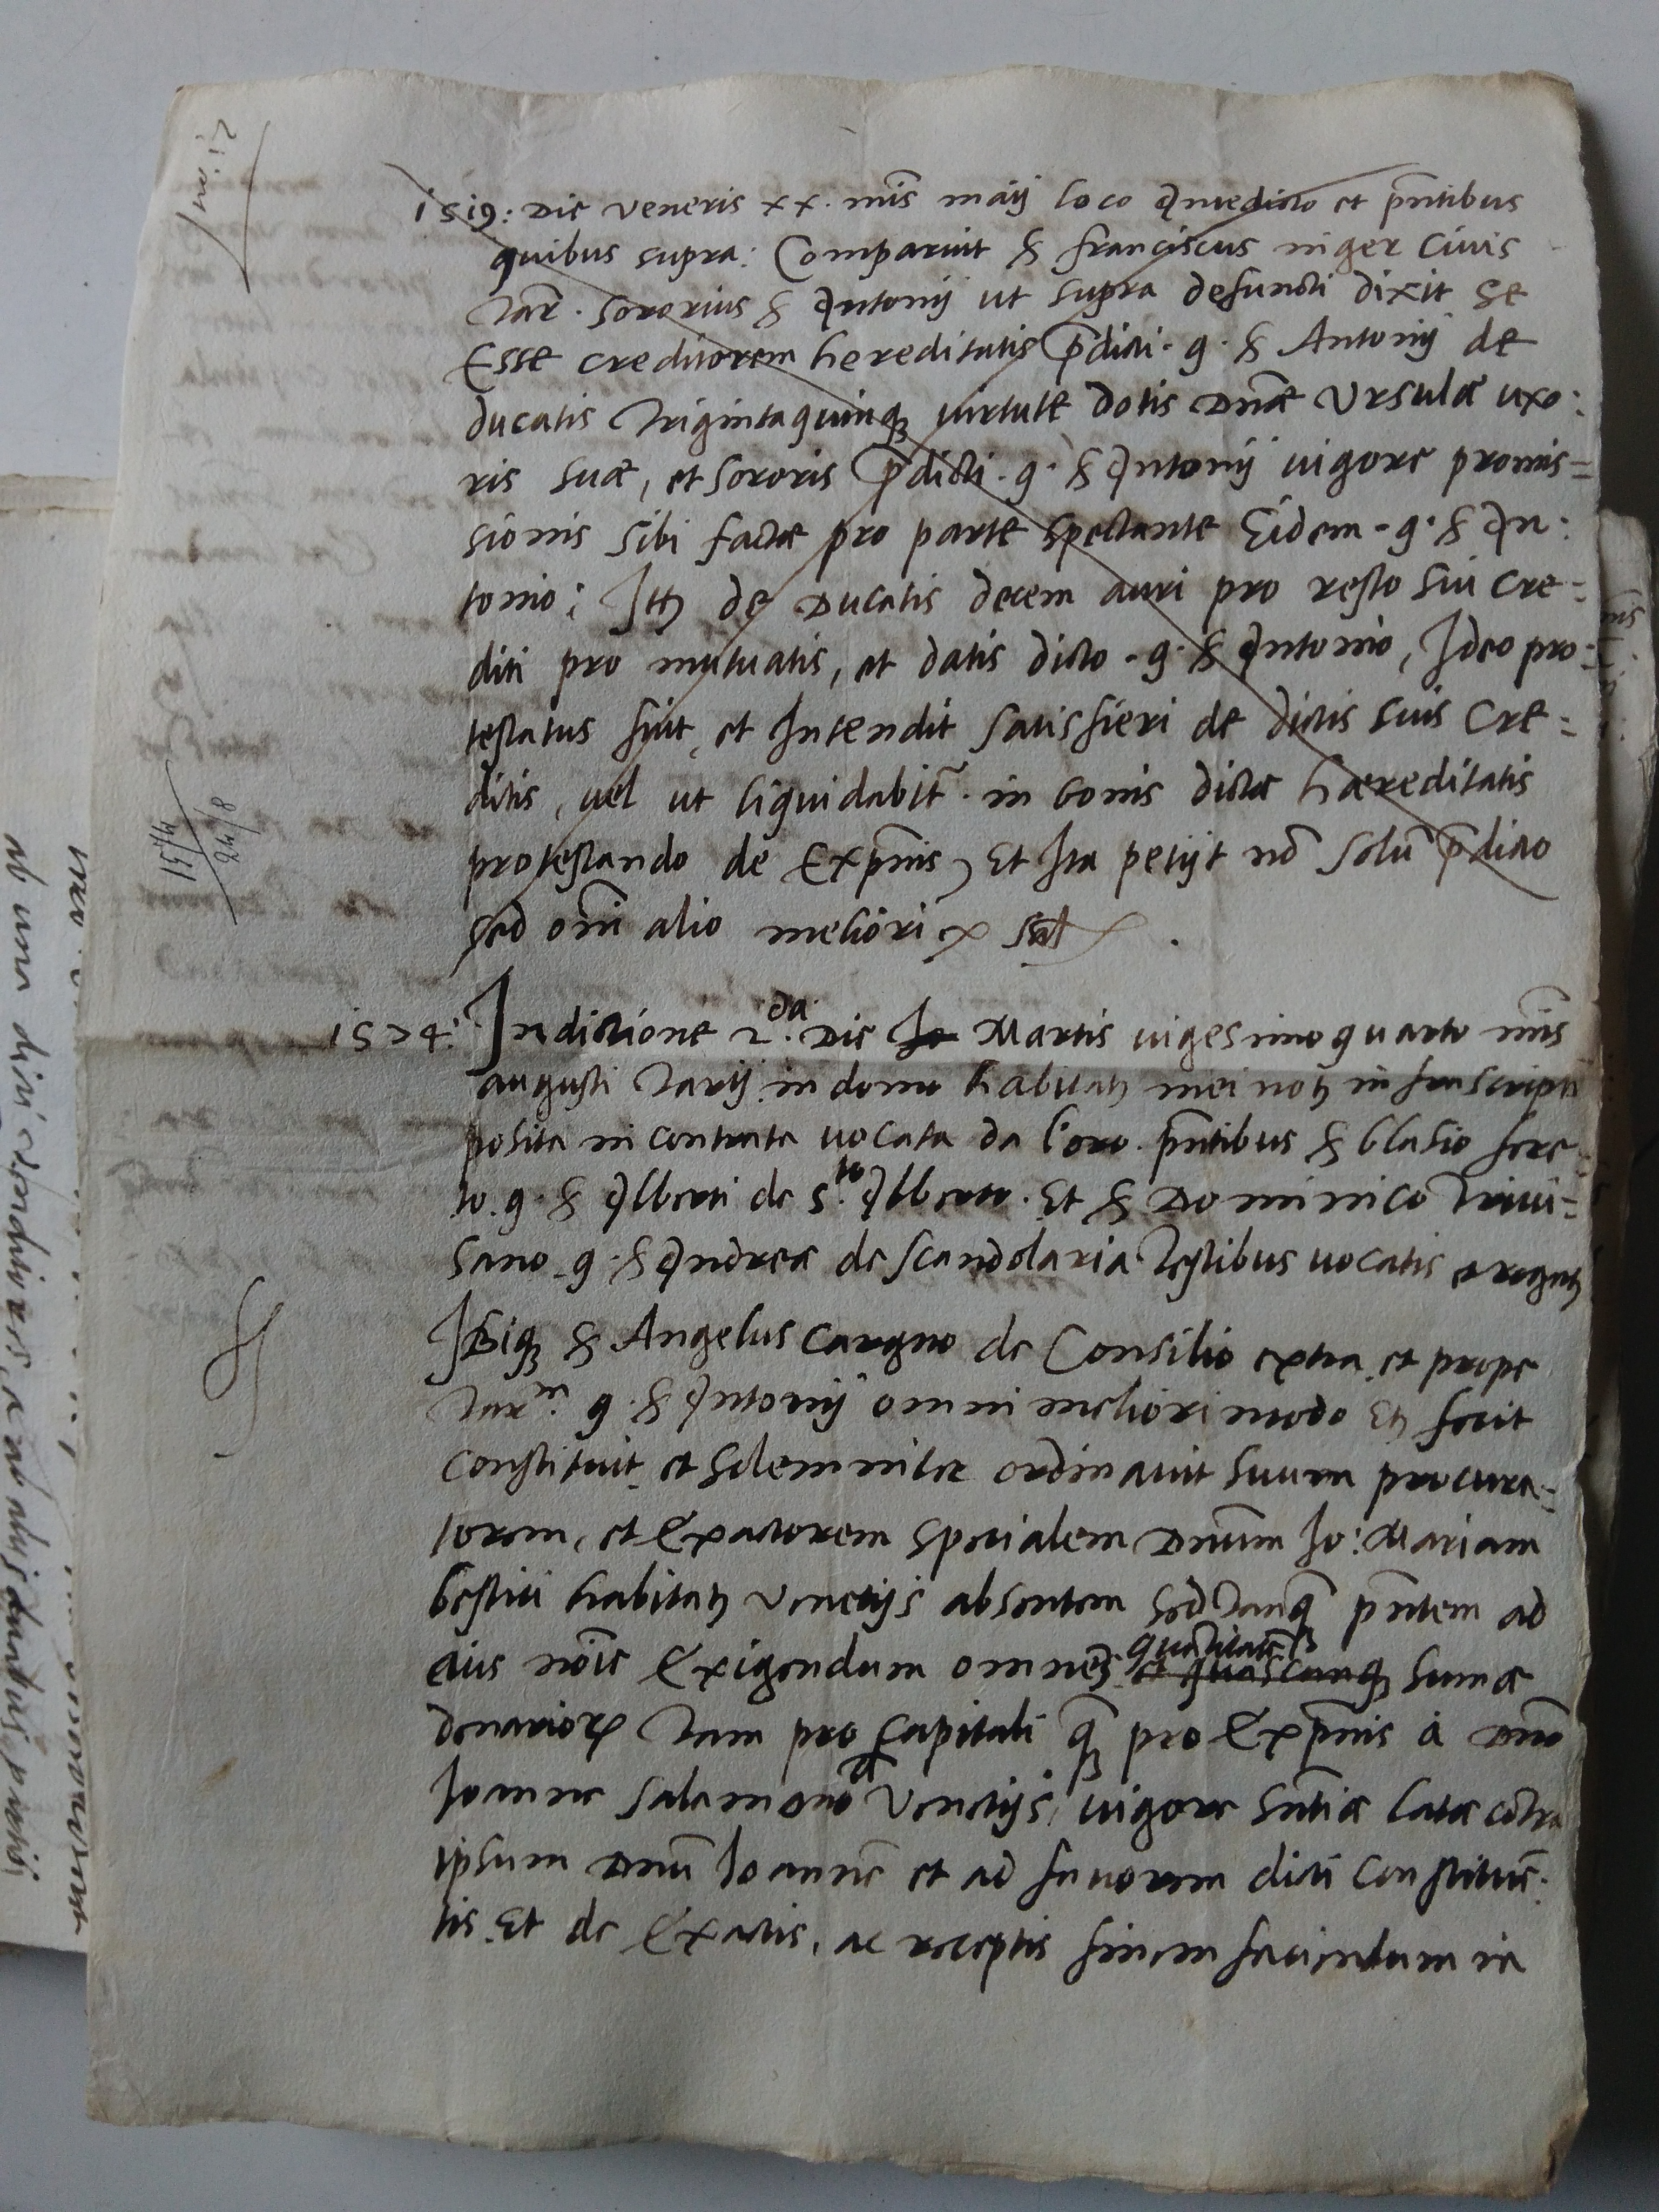 1519: Die veneris xx. mẽis maij loco Antedicto et p̃ntibus
quibus supra: Comparuit S franciscus niger Civis
Tar̃. sororius S Antonij ut supra defuncti dixit se
Esse creditorem hereditatis p̃dicti. q. S Antonij de
ducatis Trigintaquinqꝫ virtute dotis Dnæ Ursulæ uxo:
ris suæ, et sororis p̃dicti. q. S Antonij vigore promis=
sionis sibi factæ pro parte spectante Eidem. q. S An:
tonio: Itꝫ de Ducatis decem auri pro resto sui cre=
diti pro mutuatis, et datis dicto. q. S Antonio, Ideo pro:
testatus fuit, et Intendit satisfieri de dictis suis Cre=
ditis, vel ut liquidabit̃. in bonis dictæ hæreditatis
protestando de Exp̃nis, Et Ita petijt nõ solũ p̃dicto
sed om̃i alio meliori
1524: Indictione 2.da Die Jo Martis vigesimoquarto mẽis
augusti Tarvij in domo habitatꝫ mei notꝫ infrascripti
posita in contrata vocata da l'oro. p̃ntibus S blasio fere
to. q. S Alberti de s.to Alberto. Et S Dominico Trivi=
sano q. S Andreæ de scandolaria Testibus vocatis et rogatꝫ
Ibiqꝫ S Angelus Cargno de Consilio extra, et prope
Tar.m q. S Antonij omni meliori modo Etꝫ fecit
constituit, et solemniter ordinavit suum procura=
torem, et Exactorem specialem Dnum Jo: Mariam
bestiti habitatꝫ Venetijs absentem sed Tanqꝫ p̃ntem ad
eius nõie Exigendum omneꝫ quãtitatẽ et quascunqꝫ sumæ
denarioꝝ Tam pro Capitali qꝫ pro Exp̃nis à Dno
Joanne Salamono Venetijs, vigore Sñtiæ latæ cõtra
ipsum Dnũ Joannẽ et ad favorem dicti constituẽ:
tis. Et de Exactis, ac receptis finem faciendum in
15/4
24/8
ab una dini
ac ab alijs duabus partib;